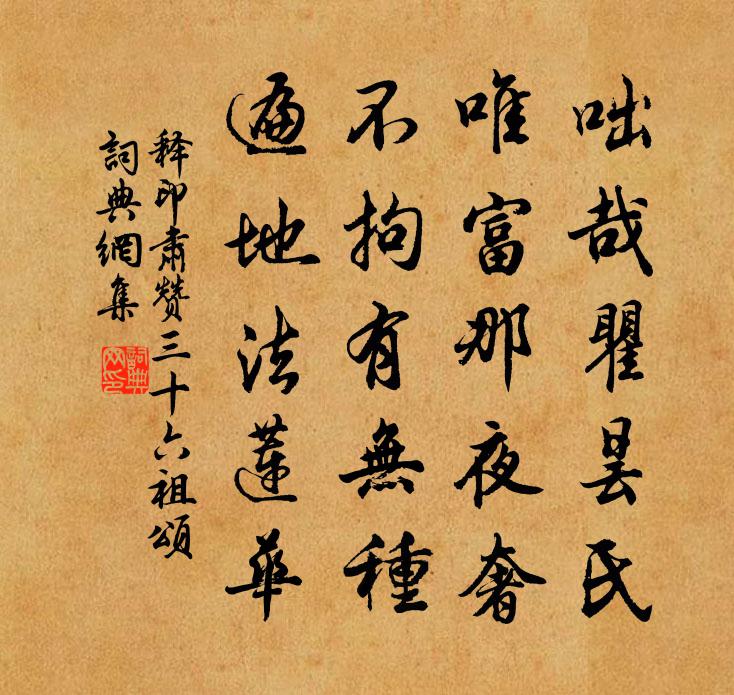 咄哉瞿昙氏
唯富那夜奢
不拘有無種
遍地法蓮華
释印肅赞三十六祖頌
詞典網集
詞典網印